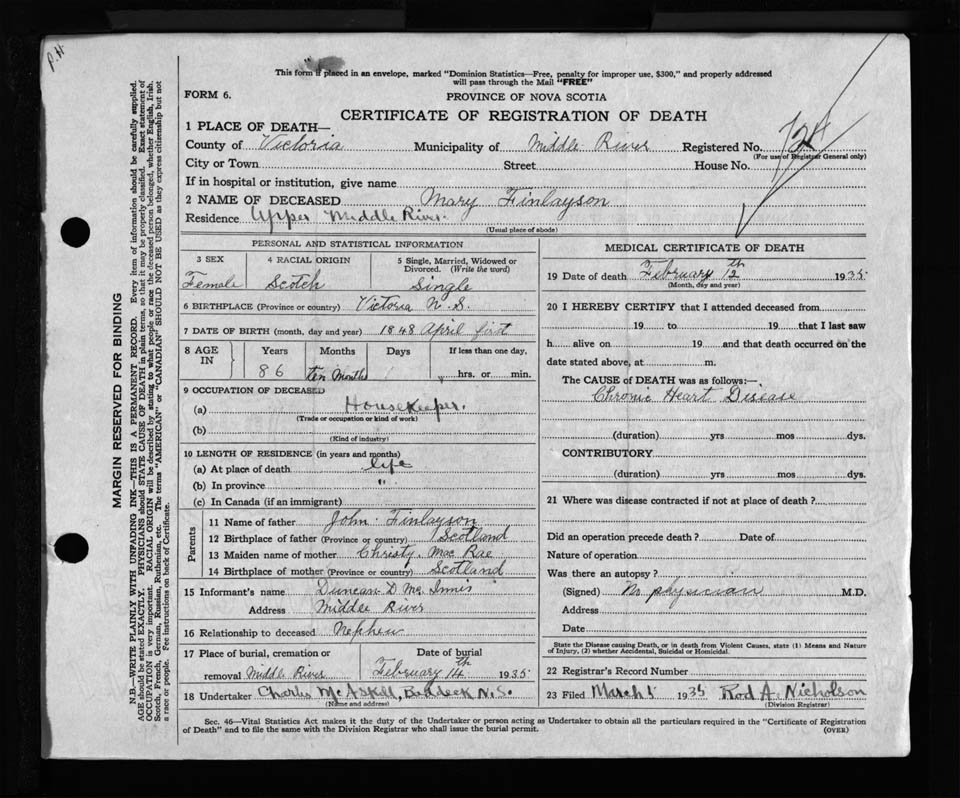 P.H
This form if placed in an envelope, marked "Dominion Statistics—Free, penalty for improper use, $300," and properly addressed
will pass through the Mail "FREE"
FORM 6.
PROVINCE OF NOVA SCOTIA
CERTIFICATE OF REGISTRATION OF DEATH
1 PLACE OF DEATH—
County of Victoria Municipality of Middle River Registered No. 724
(For use of Registrar General only)
City or Town Street House No.
If in hospital or institution, give name
2 NAME OF DECEASED Mary Finlayson
Residence Upper Middle River
(Usual place of abode)
PERSONAL AND STATISTICAL INFORMATION
3 SEX 4 RACIAL ORIGIN 5 Single, Married, Widowed or
Divorced. (Write the word)
Female Scotch Single
6 BIRTHPLACE (Province or country) Victoria N.S.
7 DATE OF BIRTH (month, day and year) 1848 April first
8 AGE IN Years Months Days If less than one day,
86 ten Months hrs. or min.
9 OCCUPATION OF DECEASED
(a) Housekeeper.
(Trade or occupation or kind of work)
(b)
(Kind of industry)
10 LENGTH OF RESIDENCE (in years and months)
(a) At place of death life
(b) In province "
(c) In Canada (if an immigrant)
Parents
11 Name of father John Finlayson
12 Birthplace of father (Province or country) Scotland
13 Maiden name of mother Christy Mac Rae
14 Birthplace of mother (Province or country) Scotland
15 Informant's name Duncan D Mc Innis
Address Middle River
16 Relationship to deceased Nephew
17 Place of burial, cremation or Date of burial
removal Middle River February 14th 1935
18 Undertaker Charles McAskill, Baddeck N.S.
(Name and address)
MEDICAL CERTIFICATE OF DEATH
19 Date of death February 12th 1935
(Month, day and year)
20 I HEREBY CERTIFY that I attended deceased from
19 to 19 that I last saw
h alive on 19 and that death occurred on the
date stated above, at m.
The CAUSE of DEATH was as follows:—
Chronic Heart Disease
(duration) yrs mos dys.
CONTRIBUTORY
(duration) yrs mos dys.
21 Where was disease contracted if not at place of death?
Did an operation precede death? Date of
Nature of operation
Was there an autopsy?
(Signed) No physician M.D.
Address
Date
State the Disease causing Death, or in death from Violent Causes, state (1) Means and Nature
of Injury, (2) whether Accidental, Suicidal or Homicidal.
22 Registrar's Record Number
23 Filed March 1 1935 Rod A. Nicholson
(Division Registrar)
Sec. 46—Vital Statistics Act makes it the duty of the Undertaker or person acting as Undertaker to obtain all the particulars required in the "Certificate of Registration
of Death" and to file the same with the Division Registrar who shall issue the burial permit. (OVER)
MARGIN RESERVED FOR BINDING
N.B.—WRITE PLAINLY WITH UNFADING INK—THIS IS A PERMANENT RECORD. Every item of information should be carefully supplied.
AGE should be stated EXACTLY. PHYSICIANS should STATE CAUSE OF DEATH in plain terms, so that it may be properly classified. Exact statement of
OCCUPATION is very important. RACIAL ORIGIN will be described by stating to what people or race the deceased person belonged, whether English, Irish,
Scotch, French, German, Russian, Ruthenian, etc. The terms "AMERICAN" or "CANADIAN" SHOULD NOT BE USED as they express citizenship but not
a race or people. Fee instructions on back of Certificate.